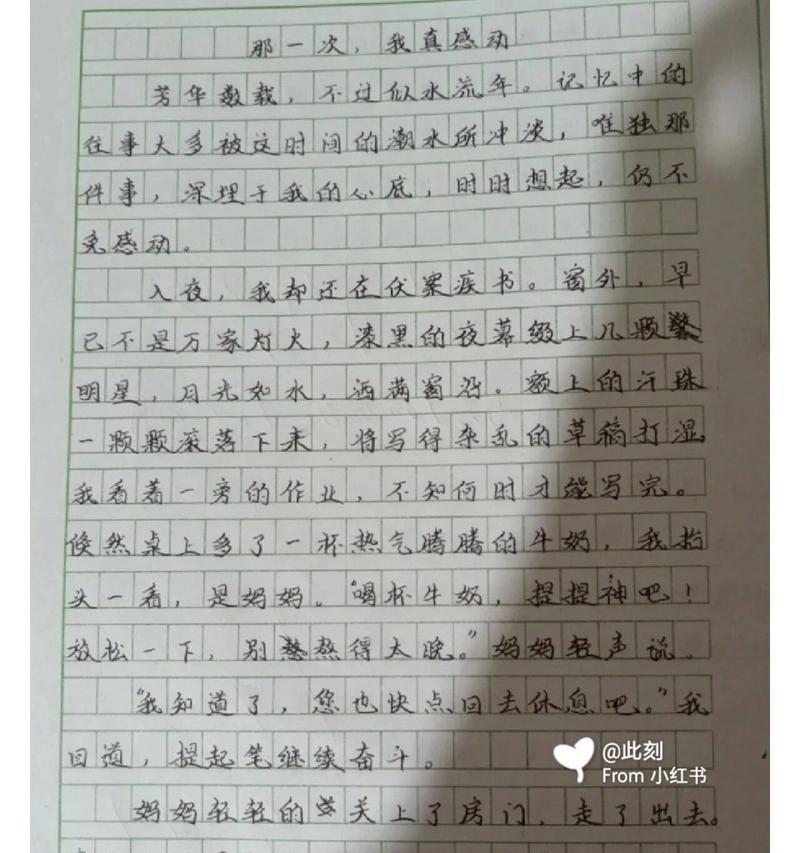 那一次，我真感动
芳华数载，不过似水流年。记忆中的
往事大多被这时间的潮水所冲淡，唯独那
件事，深埋于我的心底，时时想起，仍不
免感动。
入夜，我却还在伏案疾书。窗外，早
已不是万家灯火，漆黑的夜幕缀上几颗
明星，月光如水，洒满窗沿。额上的汗珠
一颗颗滚落下来，将写得杂乱的草稿打湿
我看着一旁的作业，不知何时才能写完。
倏然桌上多了一杯热气腾腾的牛奶，我抬
头一看，是妈妈。“喝杯牛奶，提提神吧！
放松一下，别熬得太晚。”妈妈轻声说。
“我知道了，您也快点回去休息吧。”我
回道，提起笔继续奋斗。
妈妈轻轻的关上了房门，走了出去。
@此刻
From 小红书